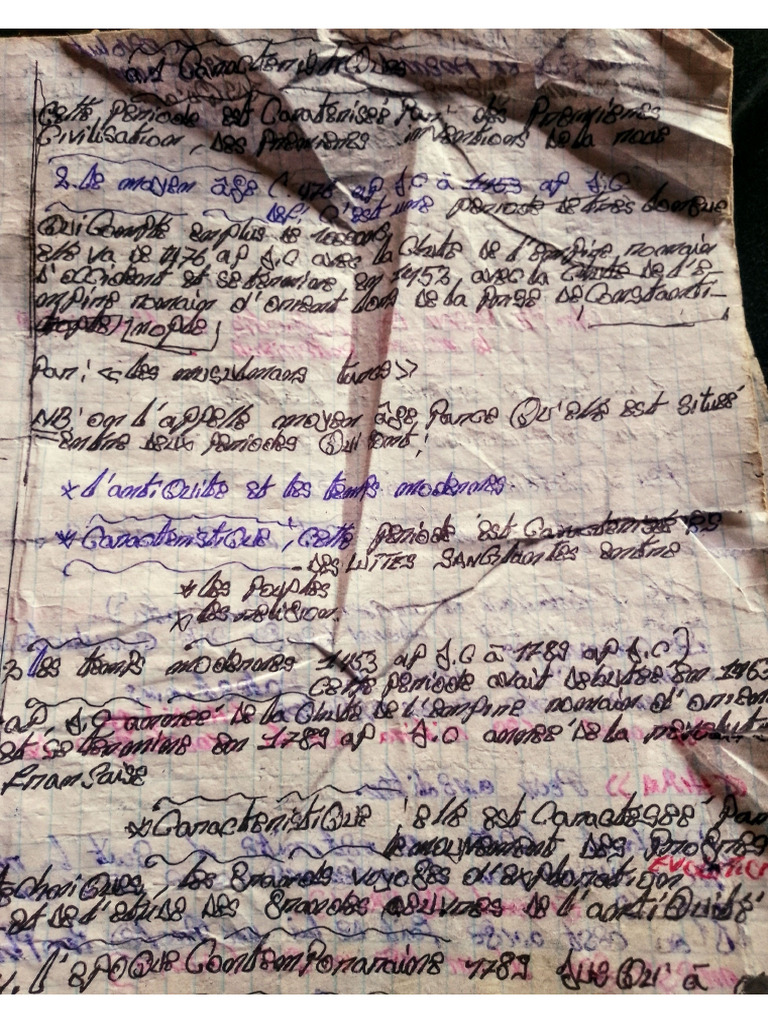 a) Caractéristiques
Cette période est Caraterisés Par: des Premières
Civilisation, des Premières inventions de la roue
2. Le moyen âge (. 476 ap J.C à 1453 ap J.C
def: C'est une période de très longue
Qui Compte en plus de
elle va de 476 ap J.C avec la Chute de l'empire romain
d'occident et se termine en 1453 avec la Chute de l'e-
mpire romain d'orient lors de la Prise de Constanti-
nople
Par: << les musulmans turcs >>
NB: on l'appelle moyen âge Parce Qu'elle est situé
entre deux Periodes Qui sont:
* L'antiQuité et les temps modernes
* CaracteristiQue; cette période est Caracterisée
des LUTTES SANGlantes entre
* les Peuples
* les religion
les temps modernes 1453 ap J.C à 1789 ap J.C)
cette periode avait debutée en 1453
ap J.C année de la Chute de l'empire romain d'orient
et se termine en 1789 ap J.C année de la revolution
Française
* CaracteristiQue: elle est Par
le mouvement des Progrès
techniQues, les grands voyages d'exploration
et de l'etude des grandes oeuvres de l'antiQuité
l'epoQue 1789 JusQu'à